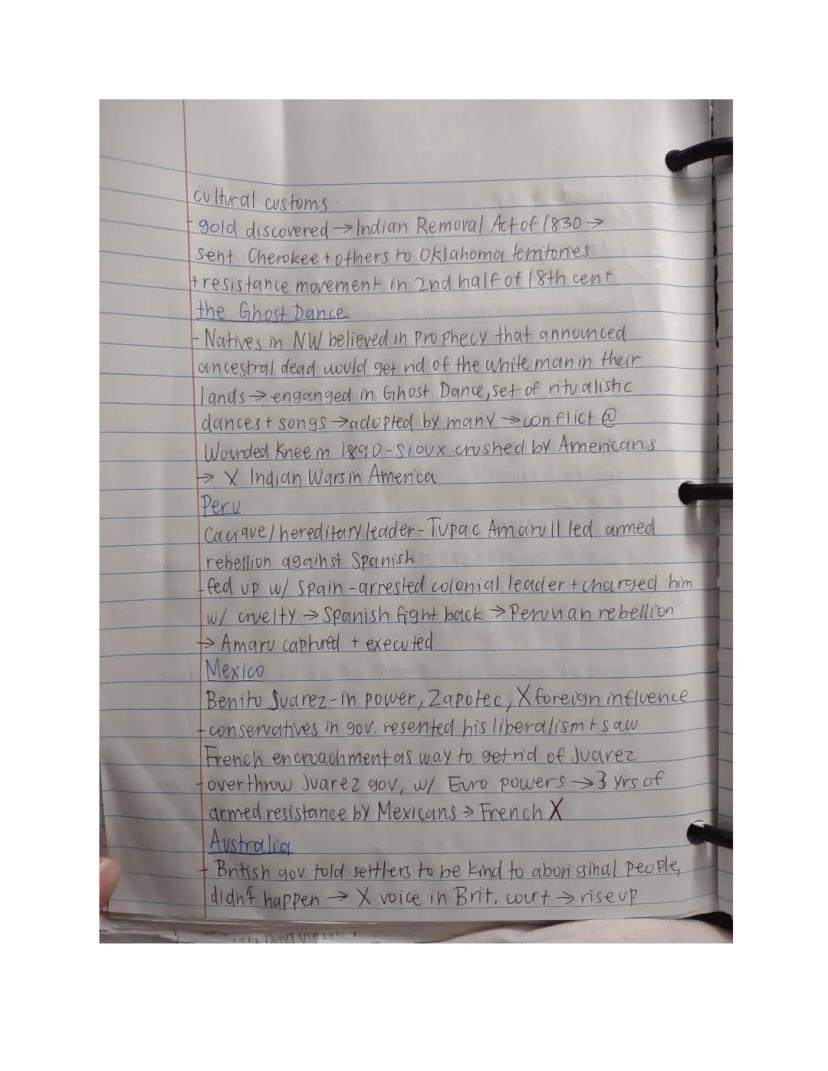 cultural customs.
- gold discovered → Indian Removal Act of 1830 →
sent Cherokee + others to Oklahoma territories
+ resistance movement in 2nd half of 18th cent
the Ghost Dance
- Natives in NW believed in prophecy that announced
ancestral dead would get rid of the white man in their
lands → enganged in Ghost Dance, set of ritualistic
dances + songs → adopted by many → conflict @
Wounded Knee in 1890 - Sioux crushed by Americans
→ X Indian Wars in America
Peru
Cacique/hereditary leader - Tupac Amaru II led armed
rebellion against Spanish
- fed up w/ Spain - arrested colonial leader + charged him
w/ cruelty → Spanish fight back → Peruvian rebellion
→ Amaru captured + executed
Mexico
Benito Juarez - in power, Zapotec, X foreign influence
- conservatives in gov. resented his liberalism + saw
French encroachment as way to get rid of Juarez
- overthrow Juarez gov, w/ Euro powers → 3 yrs of
armed resistance by Mexicans → French X
Australia
- British gov told settlers to be kind to aboriginal people,
didn't happen → X voice in Brit. court → rise up